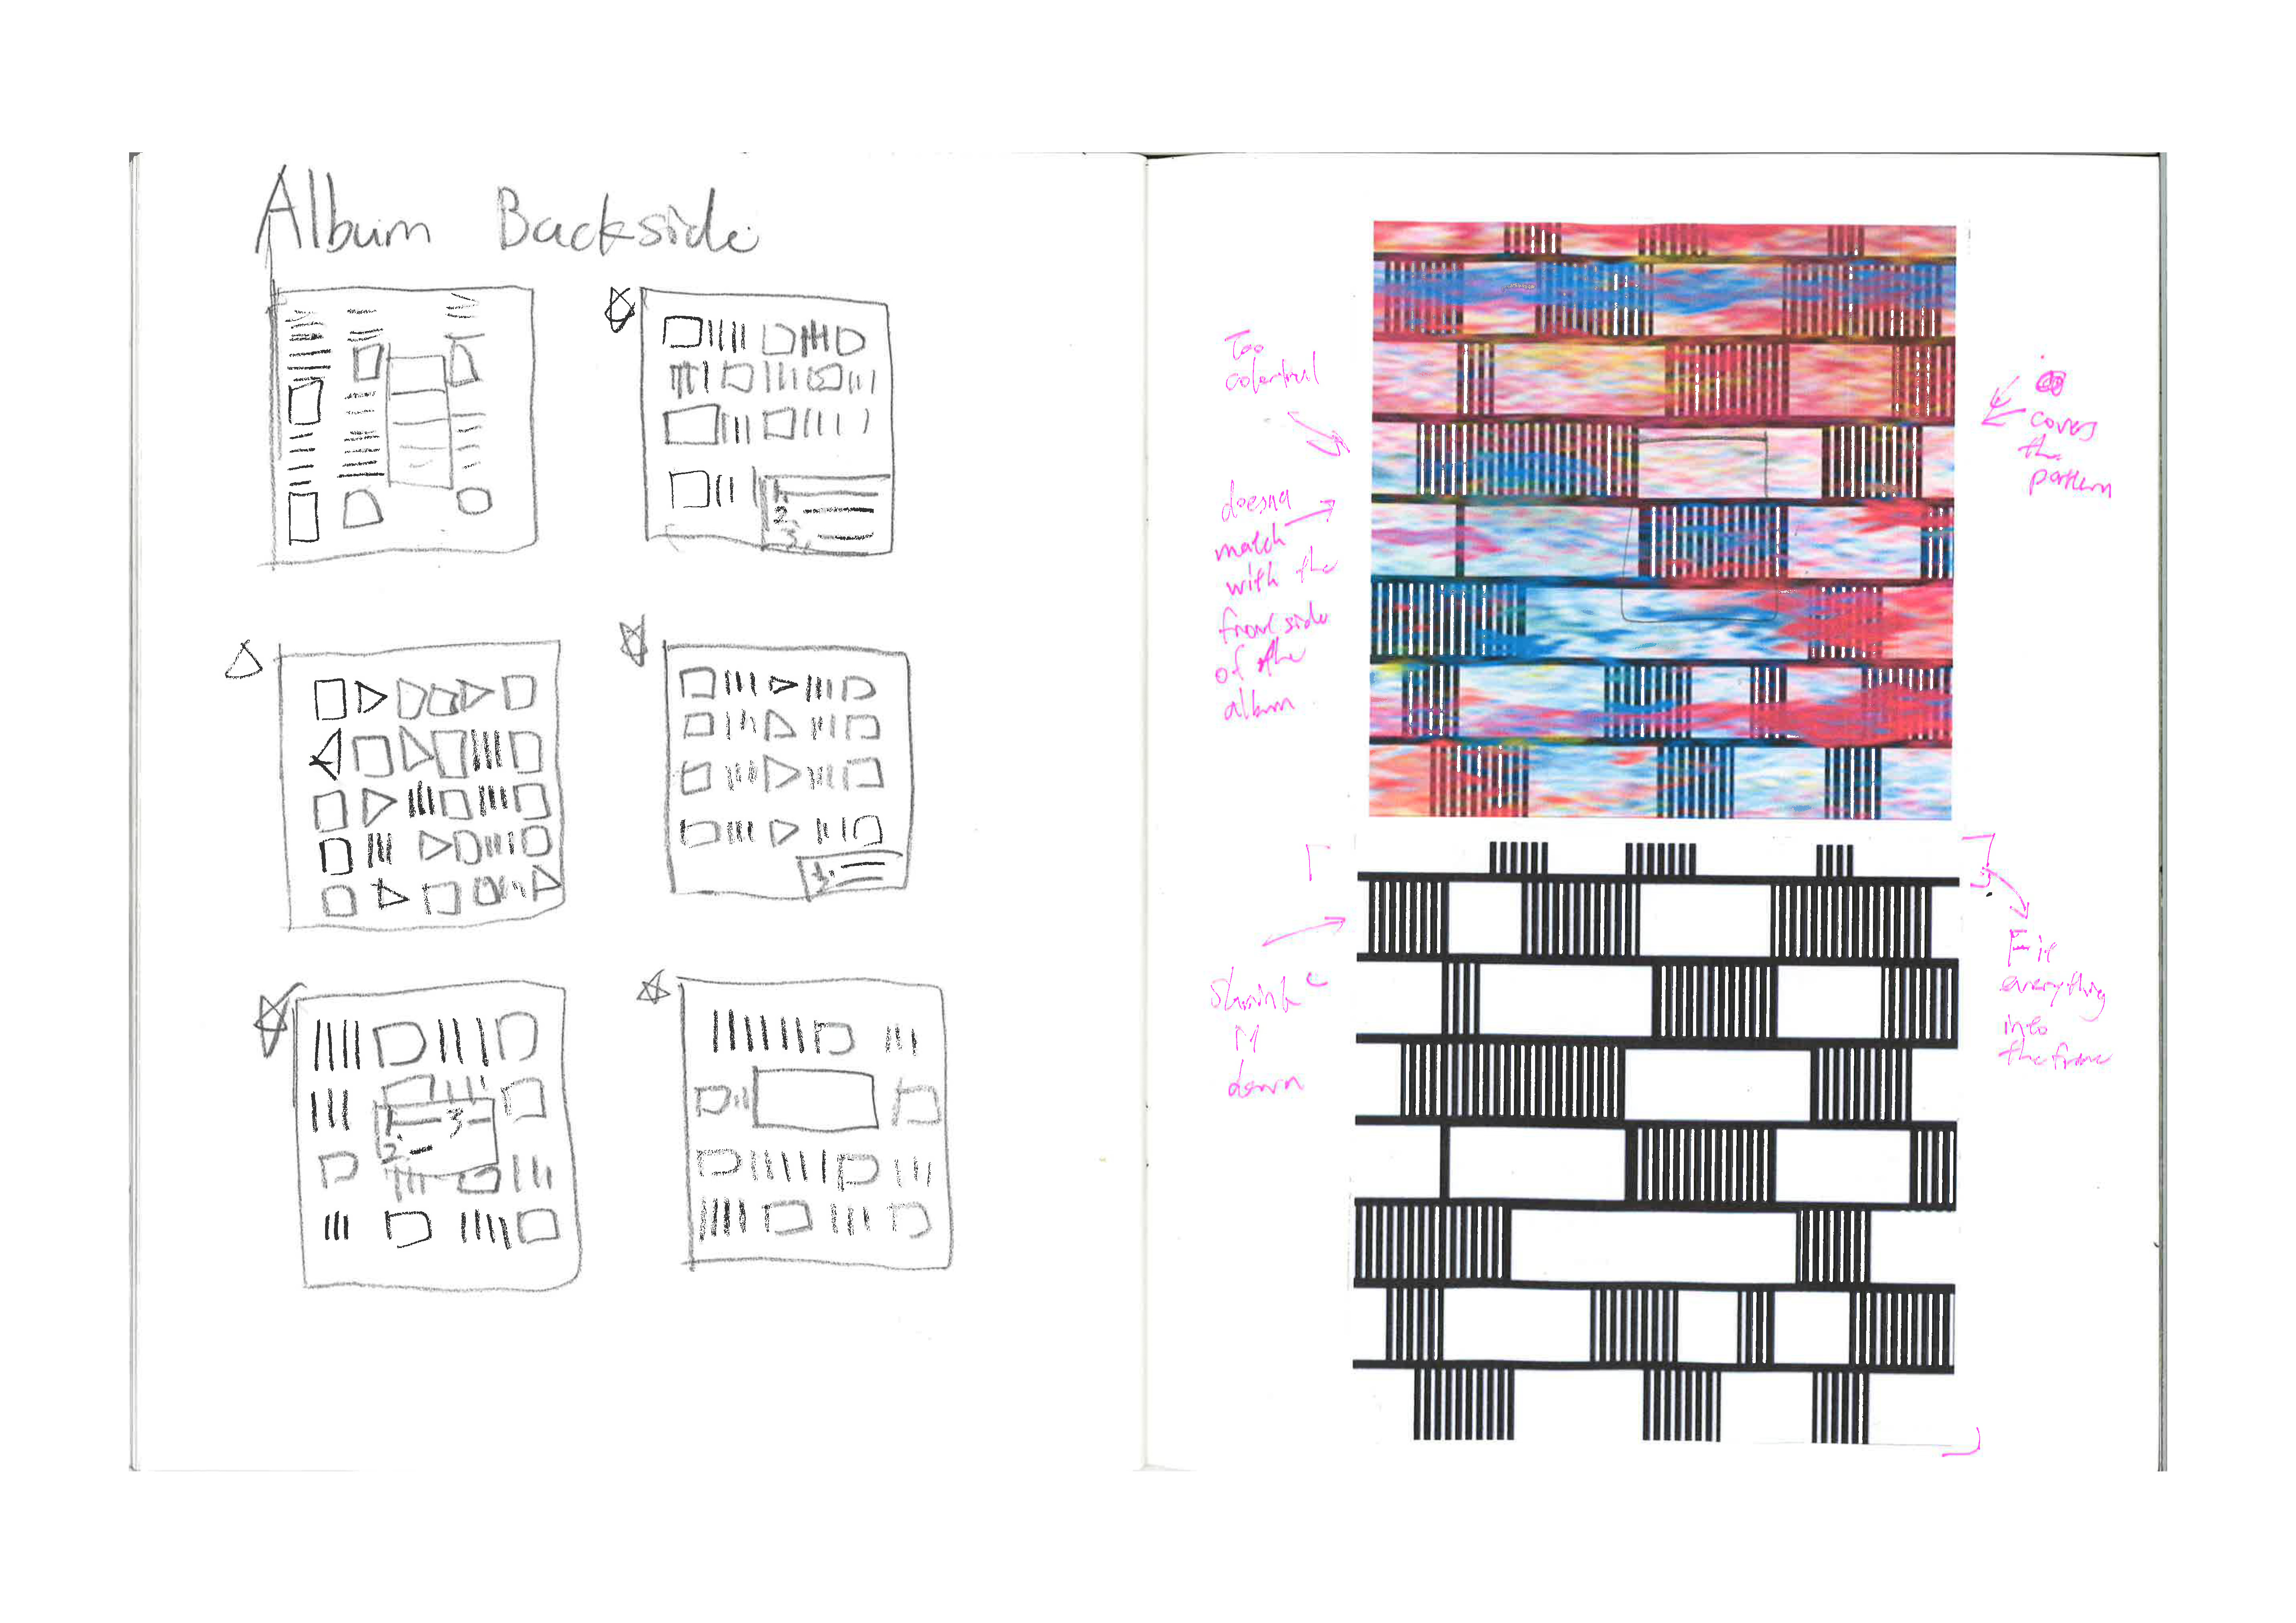 Album Backside
1.
2.
3.
3.
1.
3
2.
Too
colorful
doesn't
match
with the
front side
of the
album
covers
the
pattern
Shrink
M
down
Fit
everything
into
the frame